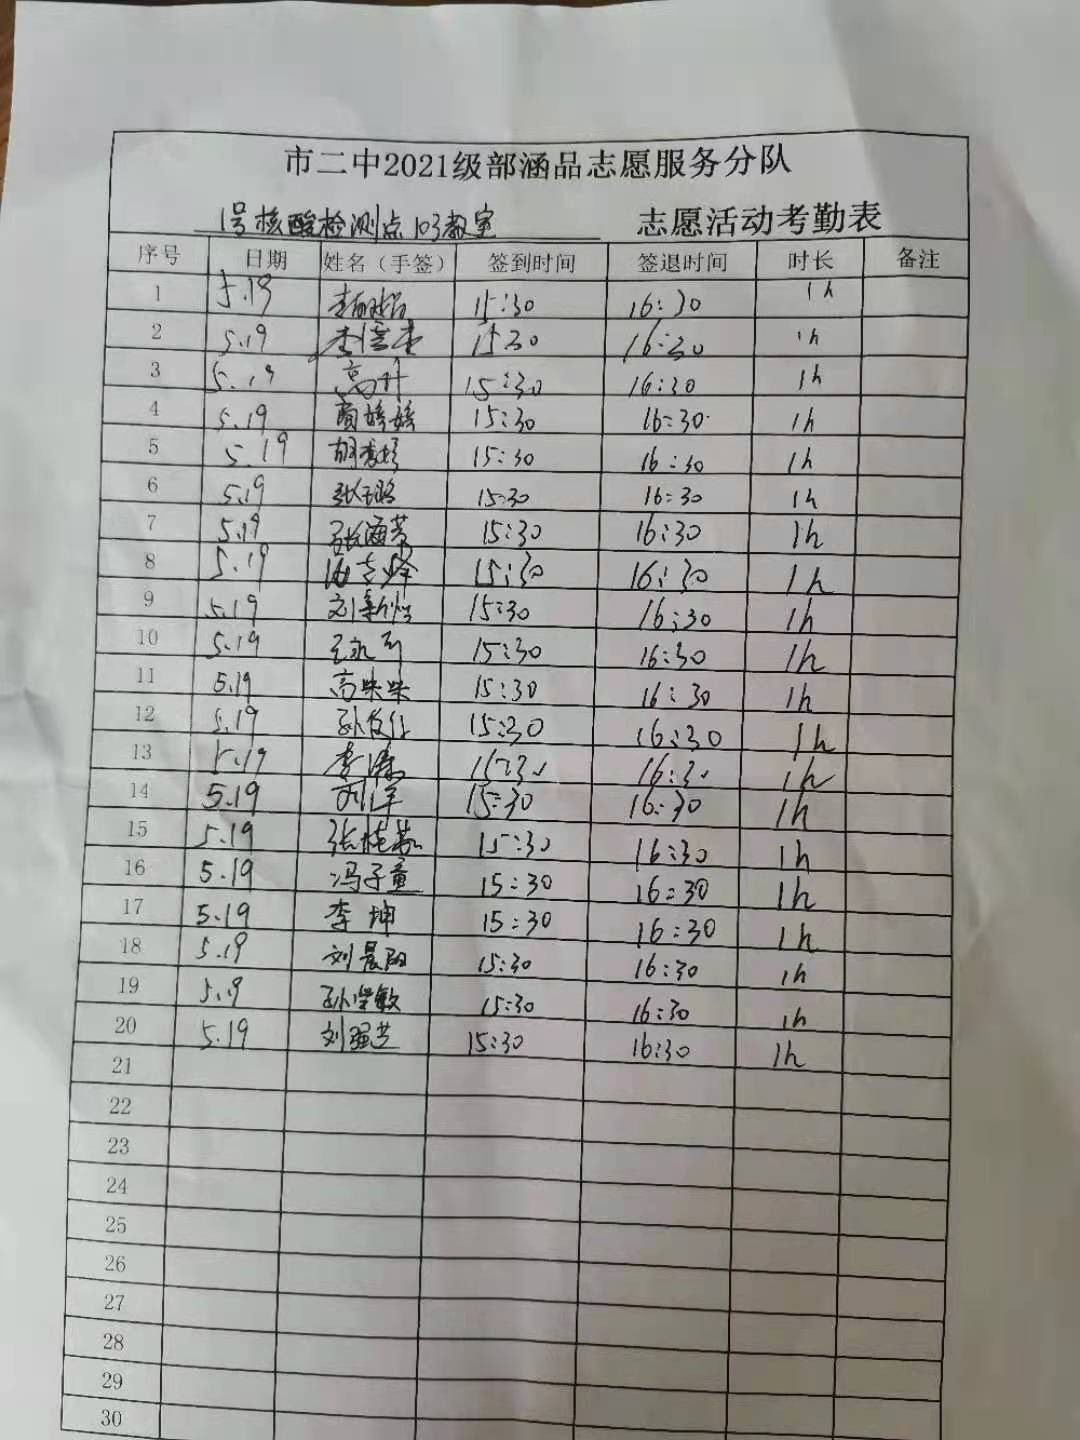 市二中2021级部涵品志愿服务分队
1号核酸检测点103教室 志愿活动考勤表
序号 日期 姓名（手签） 签到时间 签退时间 时长 备注
1 5.19 15:30 16:30 1h
2 5.19 15:30 16:30 1h
3 5.19 高升 15:30 16:30 1h
4 5.19 15:30 16:30 1h
5 5.19 15:30 16:30 1h
6 5.19 15:30 16:30 1h
7 5.19 15:30 16:30 1h
8 5.19 15:30 16:30 1h
9 5.19 15:30 16:30 1h
10 5.19 15:30 16:30 1h
11 5.19 15:30 16:30 1h
12 5.19 15:30 16:30 1h
13 5.19 15:30 16:30 1h
14 5.19 刘洋 15:30 16:30 1h
15 5.19 15:30 16:30 1h
16 5.19 冯子童 15:30 16:30 1h
17 5.19 李坤 15:30 16:30 1h
18 5.19 刘晨阳 15:30 16:30 1h
19 5.19 15:30 16:30 1h
20 5.19 刘强芝 15:30 16:30 1h
21
22
23
24
25
26
27
28
29
30